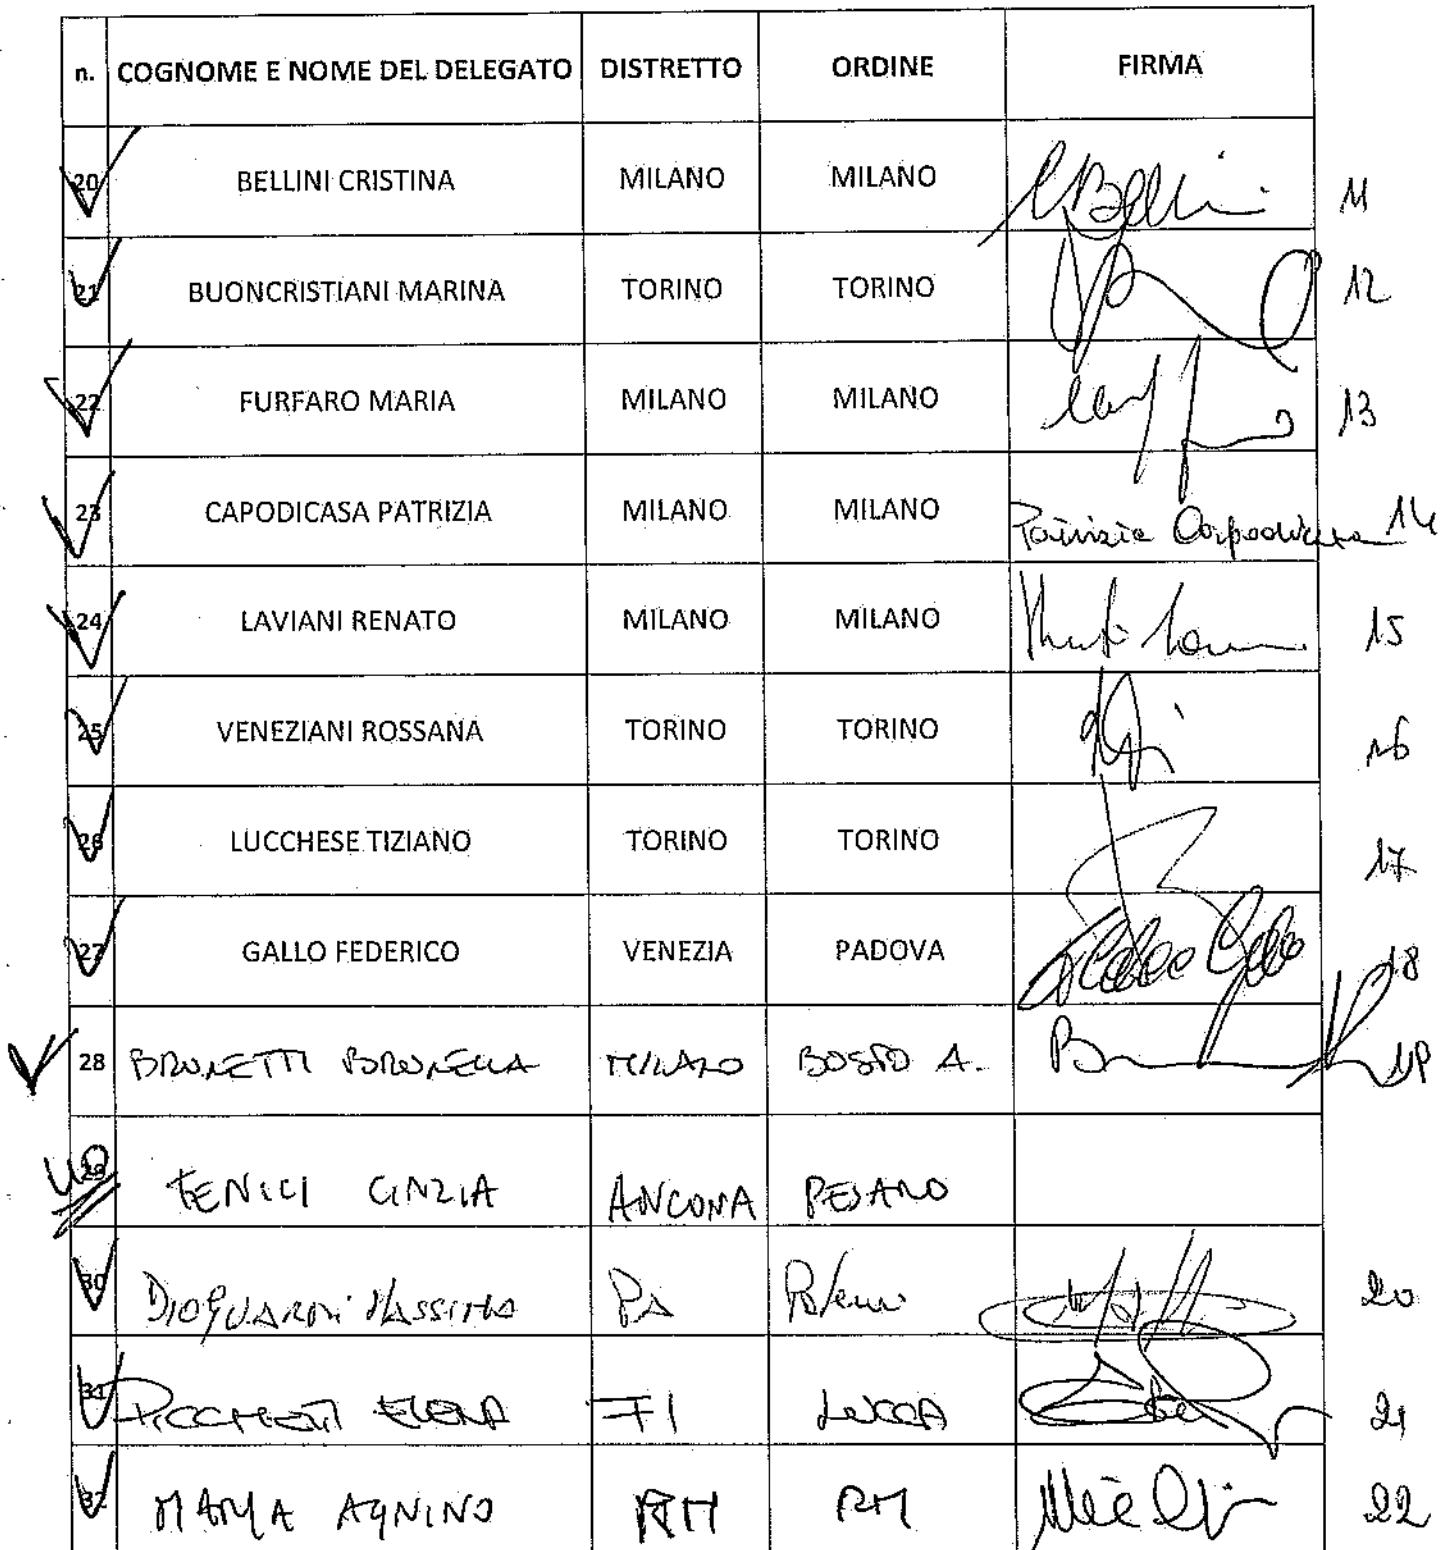 n. COGNOME E NOME DEL DELEGATO DISTRETTO ORDINE FIRMA
20 BELLINI CRISTINA MILANO MILANO Bellini 11
21 BUONCRISTIANI MARINA TORINO TORINO 12
22 FURFARO MARIA MILANO MILANO 13
23 CAPODICASA PATRIZIA MILANO MILANO Patrizia Capodicasa 14
24 LAVIANI RENATO MILANO MILANO 15
25 VENEZIANI ROSSANA TORINO TORINO 16
26 LUCCHESE TIZIANO TORINO TORINO 17
27 GALLO FEDERICO VENEZIA PADOVA 18
28 BRUNETTI BRUNELLA MILANO BUSTO A. 19
29 FENICI CINZIA ANCONA PESARO
30 DIOGUARDI MASSIMO PA 20
31 PICCHETTI ELENA FI LUCCA 21
32 AGNINO RM RM 22